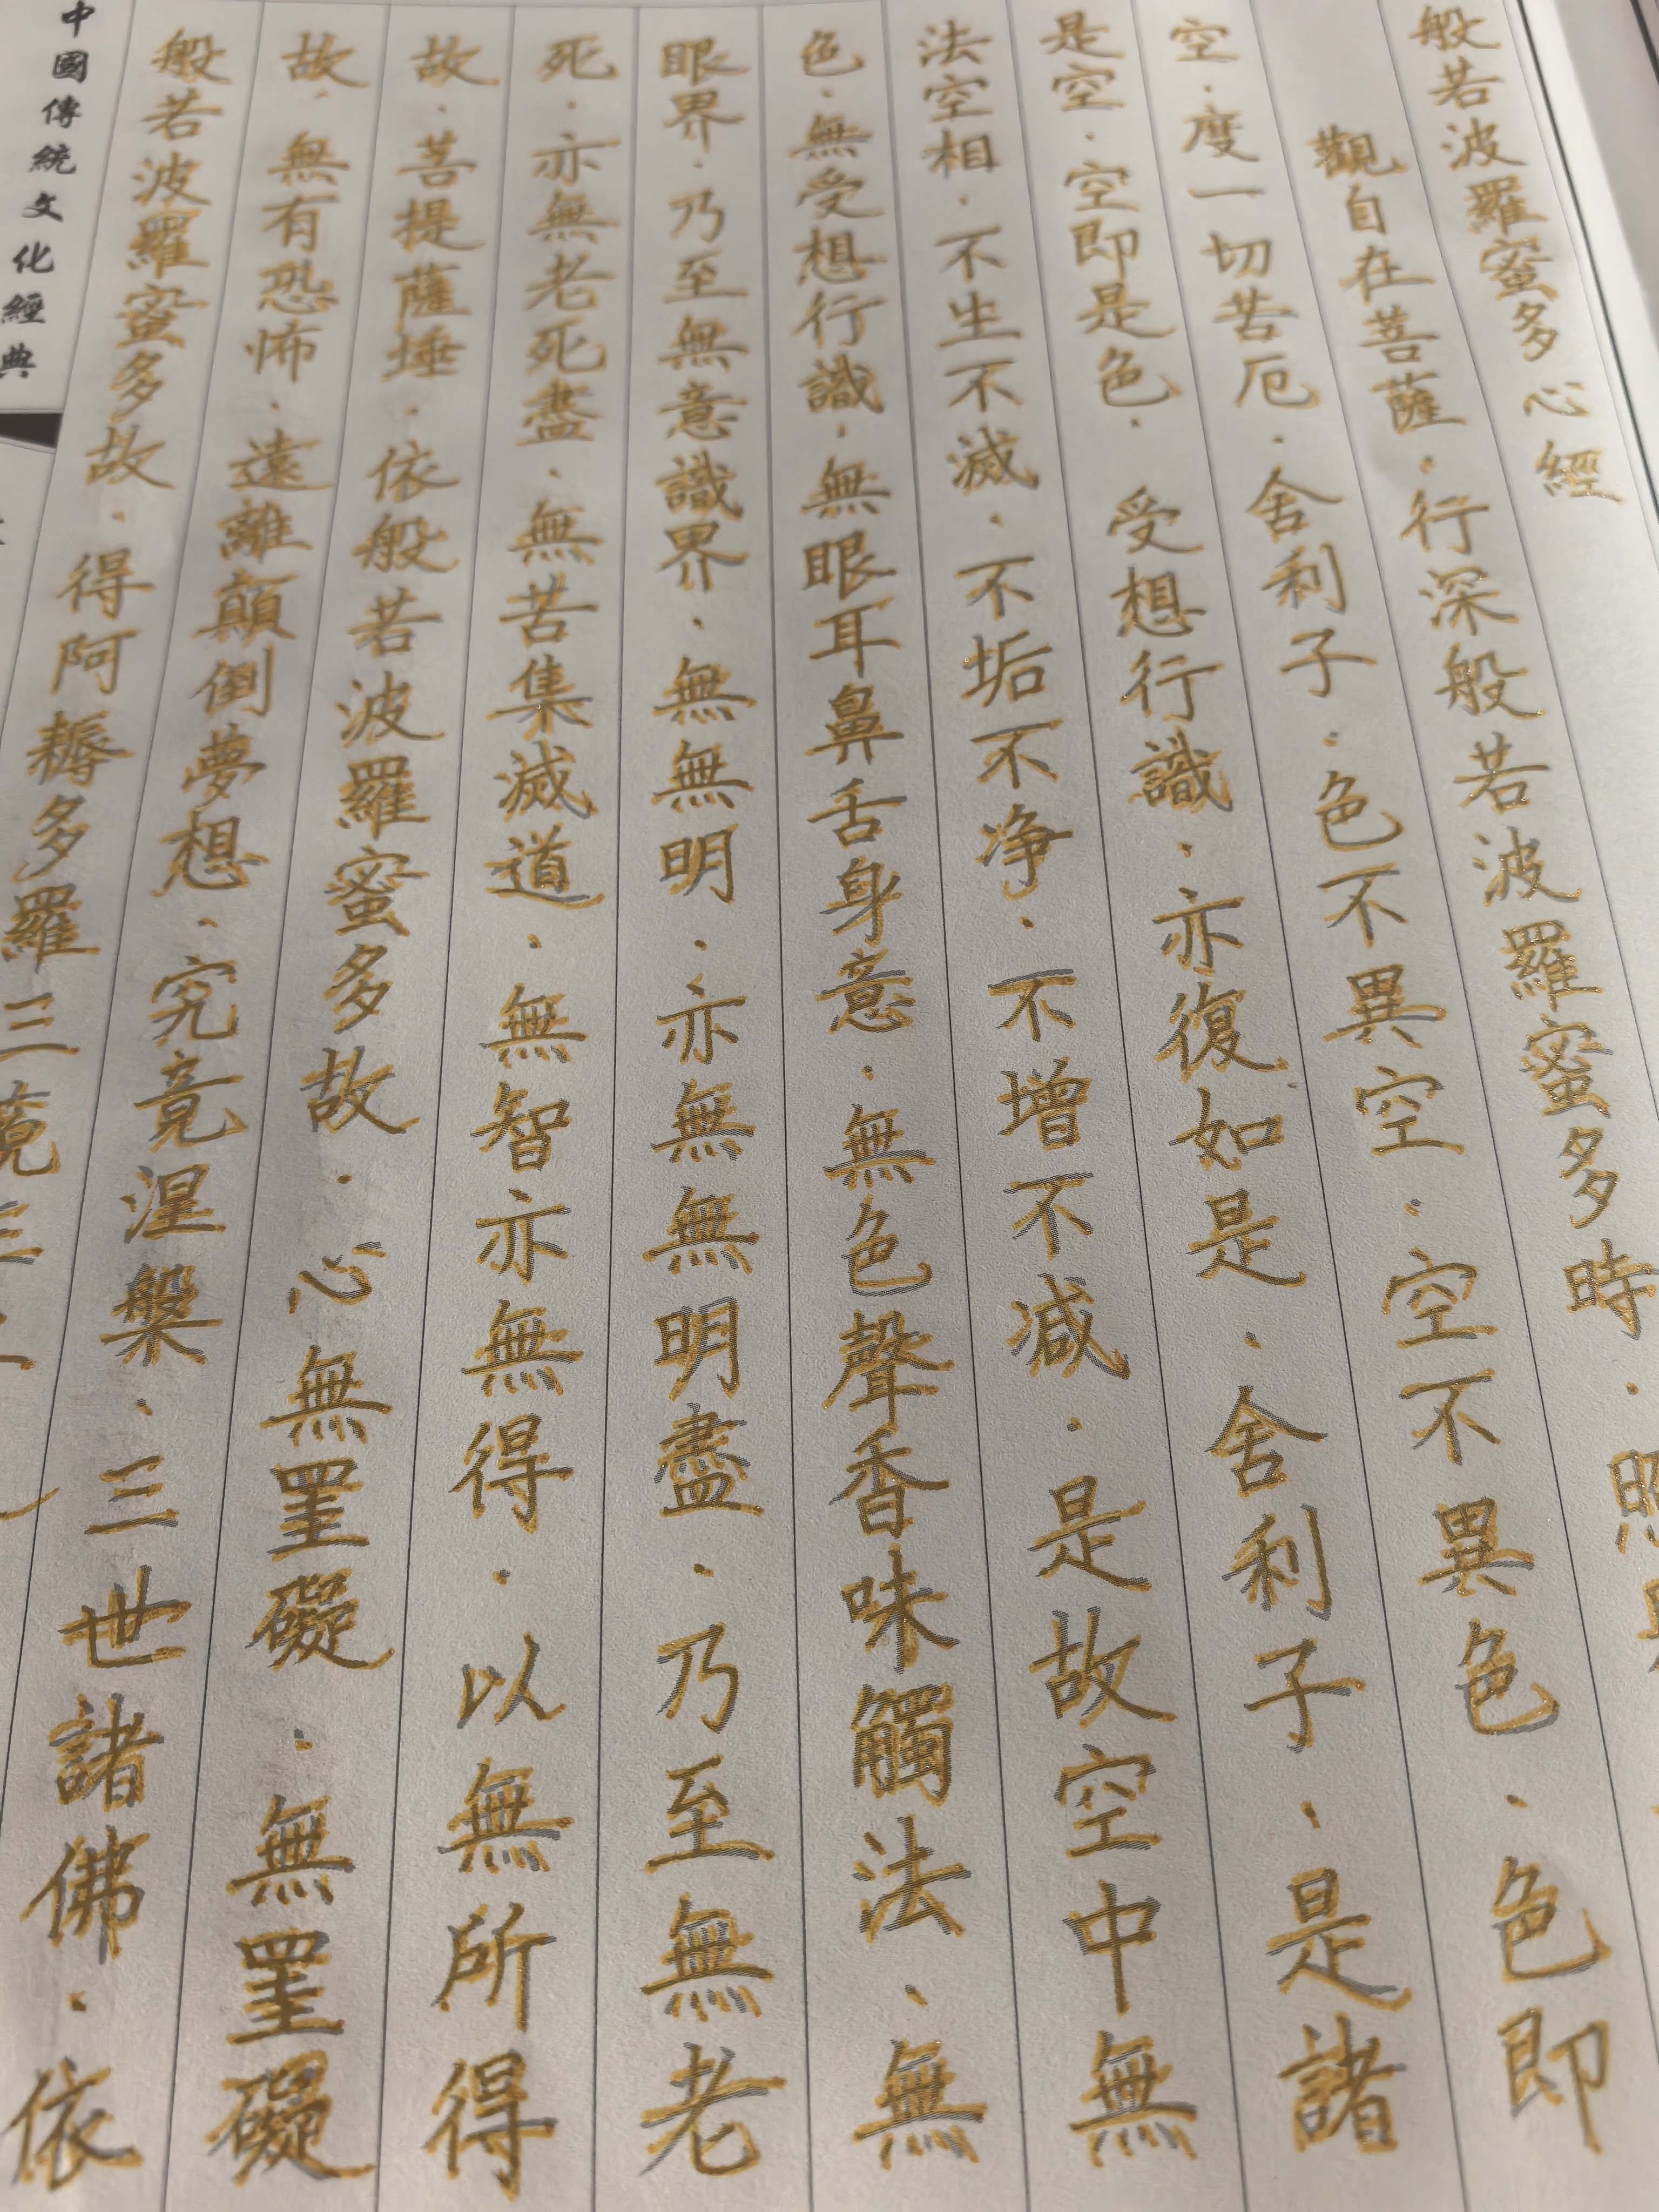 般若波羅蜜多心經
觀自在菩薩·行深般若波羅蜜多時·照
空·度一切苦厄·舍利子·色不異空·空不異色·色即
是空·空即是色·受想行識·亦復如是·舍利子·是諸
法空相·不生不滅·不垢不净·不增不减·是故空中無
色·無受想行識·無眼耳鼻舌身意·無色聲香味觸法·無
眼界·乃至無意識界·無無明·亦無無明盡·乃至無老
死·亦無老死盡·無苦集滅道·無智亦無得·以無所得
故·菩提薩埵·依般若波羅蜜多故·心無罣礙·無罣礙
故·無有恐怖·遠離顛倒夢想·究竟涅槃·三世諸佛·依
般若波羅蜜多故·得阿耨多羅三藐三
中國傳統文化經典